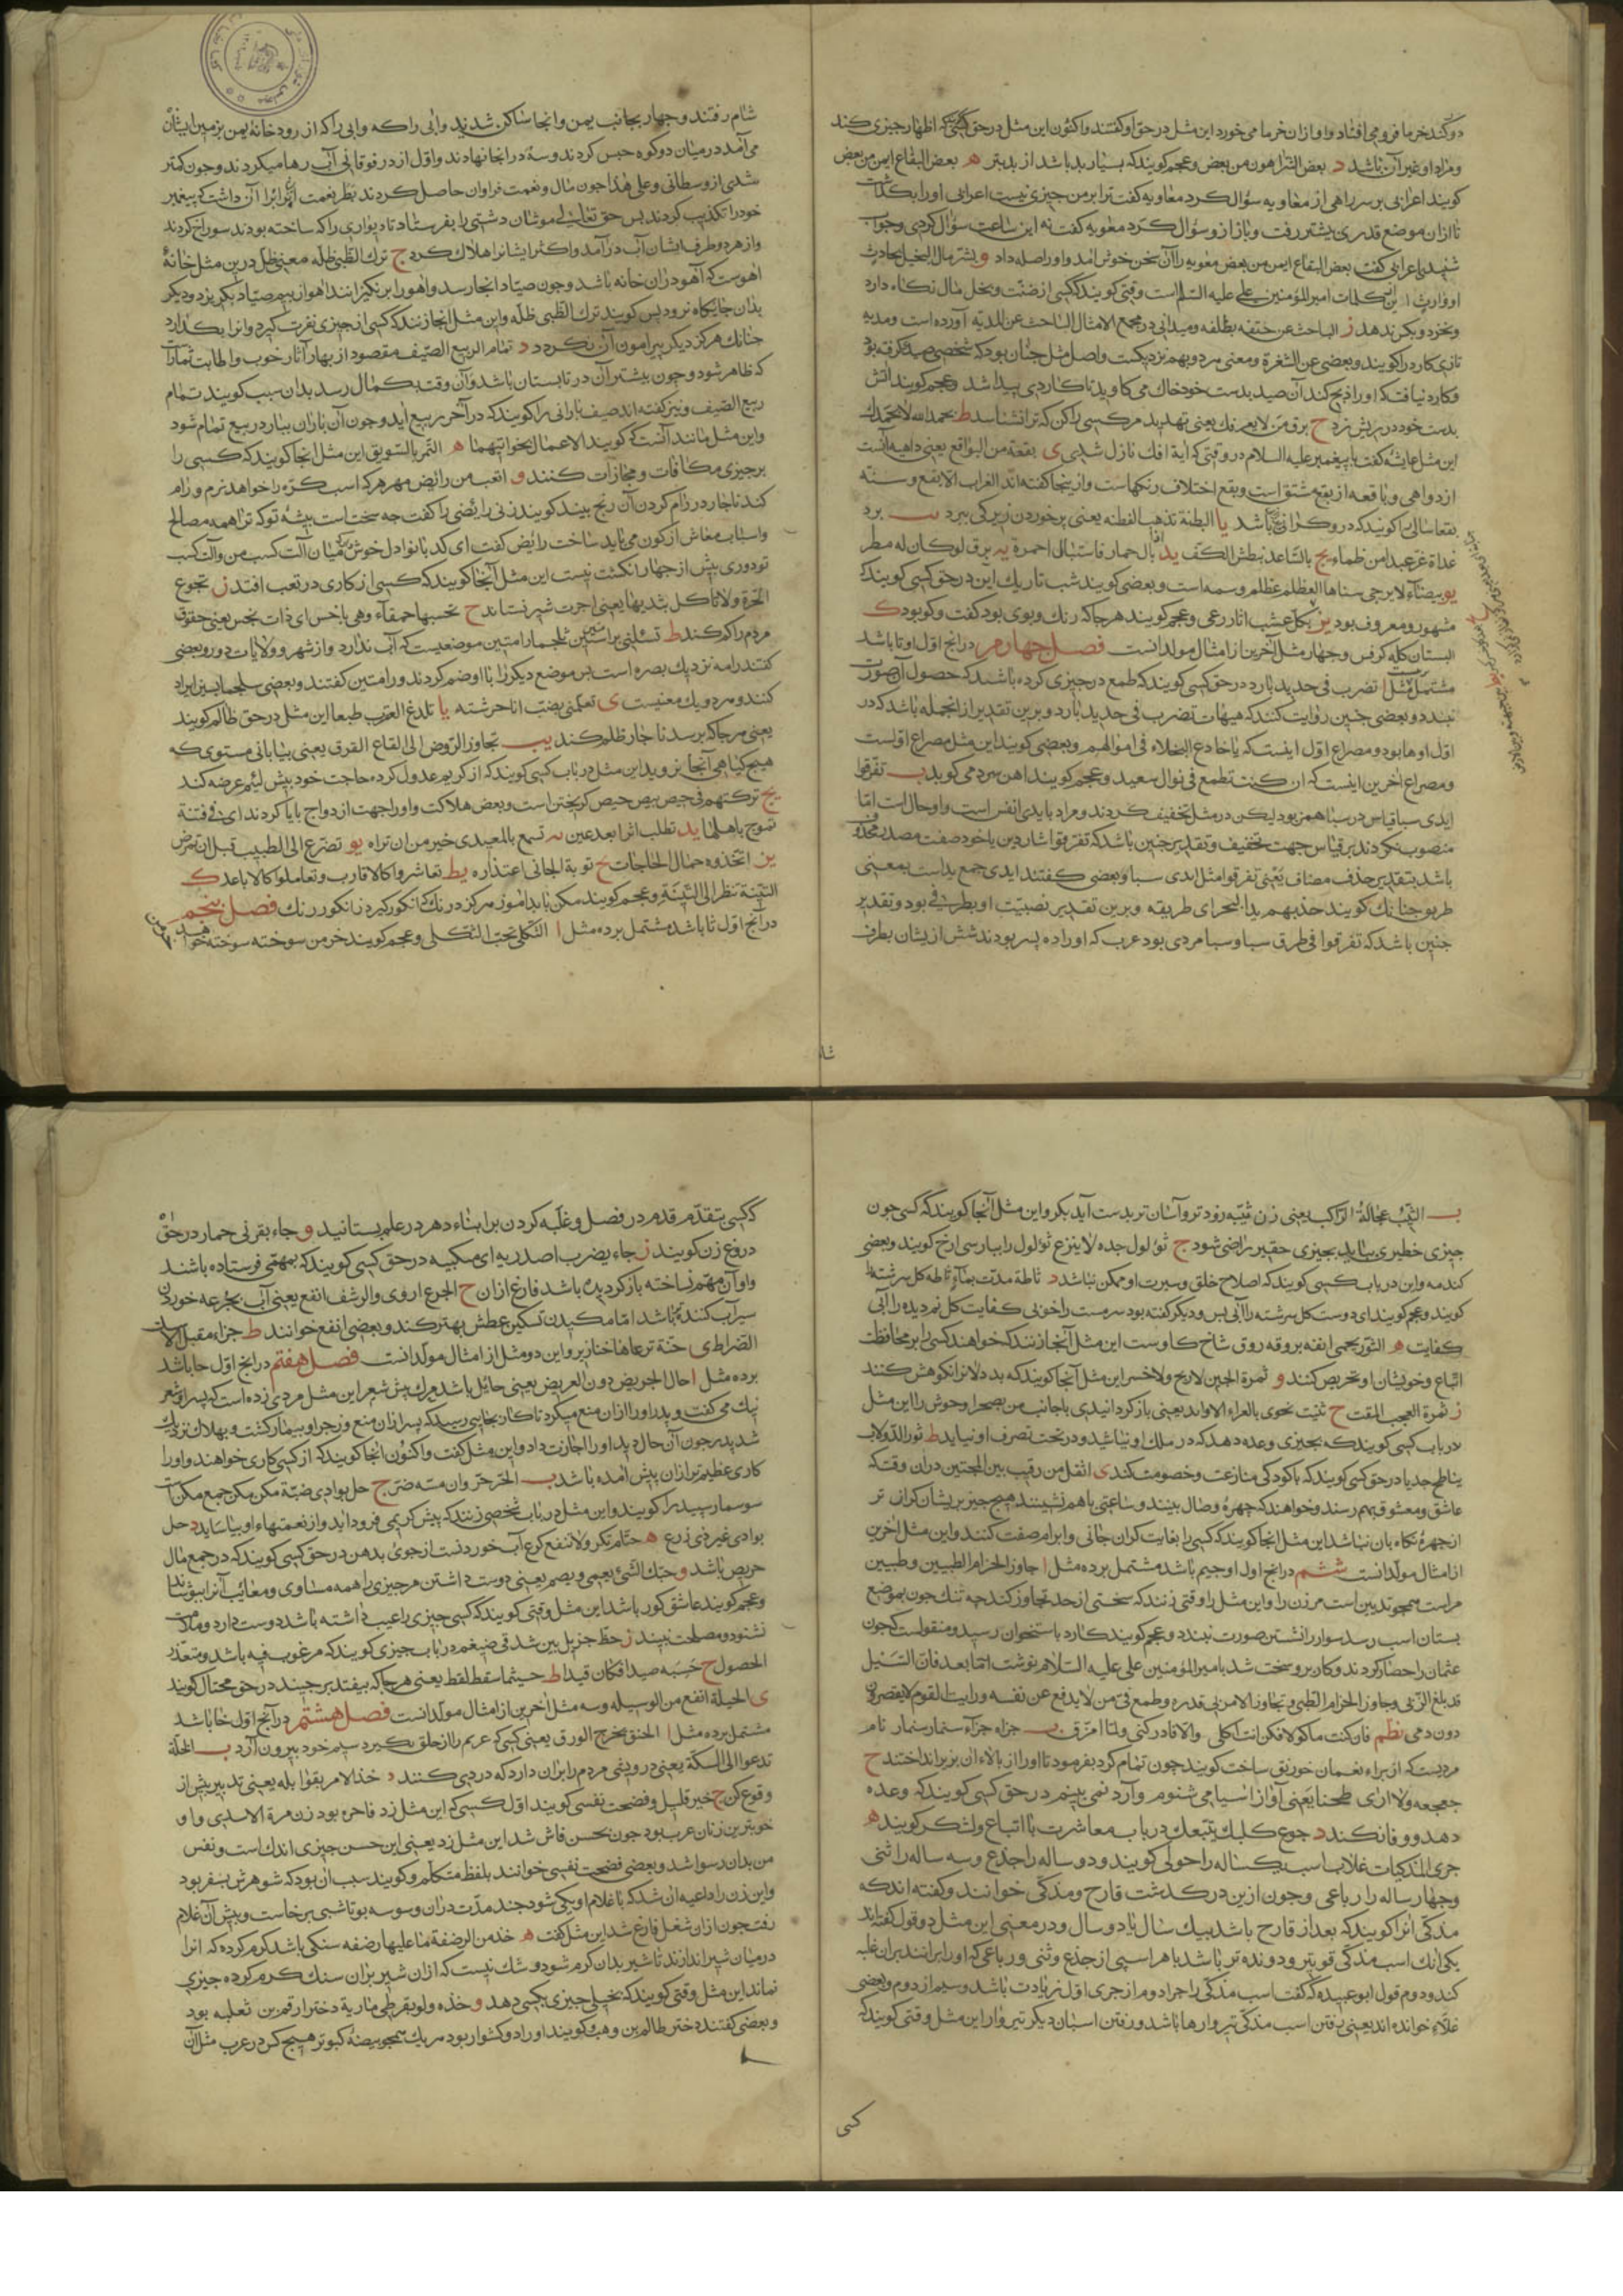 دو کند خرما فرو می افتاد و او ازان خرما می خورد این مثل در حق او گفتند و اکنون این مثل در حق کسی اظهار چیزی کند
و مراد او غیر آن باشد د بعض الشر اهون من بعض و عجم کویند که بسیار بد باشد از بد بتر ه بعض البقاع ایمن من بعض
کویند اعرابی بر سر راهی از معاویه سؤال کرد معاویه کفت ترا بر من چیزی نیست اعرابی او را بگذاشت
تا ازان موضع قدری پیشتر رفت و باز ازو سؤال کرد معویه کفت نه این ساعت سؤال کردی و جواب
شنیدی اعرابی کفت بعض البقاع ایمن من بعض معویه را آن سخن خوش آمد و او را صله داد و بشر مال البخیل بحادث
او وارث این از کلمات امیر المؤمنین علی علیه السلم است و وقتی کویند که کسی از ضنت و بخل مال نکاه دارد
و نخورد و بکس ندهد ز الباحث عن حتفه بظلفه و میدانی در مجمع الامثال الباحث عن المدیة آورده است و مدیه
تازی کارد را کویند و بعضی عن الشفرة و معنی هر دو بهم نزدیکست و اصل مثل چنان بود که شخصی صید کرفته بود
و کارد نیافت که او را ذبح کند آن صید بدست خود خاک می کاوید تا کاردی پیدا شد و عجم کویند آتش
بدست خود در ریش زد ح برق من لا یعرفک یعنی تهدید مر کسی را کن که ترا نشناسد ط بحمد الله لا بحمدک
این مثل عایشه کفت با پیغمبر علیه السلام در وقتی که آیة افک نازل شد ی بقعة من البواقع یعنی داهیه آنست
از دواهی و باقعه از بقع مشتق است و بقع اختلاف رنکهاست و از ینجا کفته اند الغراب الابقع و سنة
بقعا سالی را کویند که در و کرانی باشد یا البطنة تذهب الفطنه یعنی پر خوردن زیرکی ببرد یب برد
غداة غر عبدا من ظماء یج بالساعد تبطش الکف ید اذا بال حمار فاستبال احمرة یه برق لو کان له مطر
مشهور و معروف بود یز بکل عشب اثار رعی و عجم کویند هر جا که رنک و بوی بود کفت و کو بود ک
البستان کله کرفس و چهار مثل آخرین از امثال مولدانست فصل چهارم در انچ اول او تا باشد
مشتمل بر مثل ا تضرب فی حدید بارد در حق کسی کویند که طمع در چیزی کرده باشد که حصول آن صورت
نبندد و بعضی چنین روایت کنند که هیهات تضرب فی حدید بارد و برین تقدیر از انجمله باشد که در
اول او ها بود و مصراع اول اینست که یا خادع البخلاء فی اموالهم و بعضی کویند این مثل مصراع اولست
و مصراع آخرین اینست که ان کنت تطمع فی نوال سعید و عجم کویند آهن سرد می کوبد ب تفرقوا
ایدی سبا قیاس در سبا همز بود لیکن در مثل تخفیف کردند و مراد بایدی انفس است و او حال است اما
منصوب نکردند بر قیاس جهت تخفیف و تقدیر چنین باشد که تفرقوا
باشد بتقدیر حذف مضاف یعنی تفرقوا مثل ایدی سبا و بعضی کفتند ایدی جمع ید است بمعنی
طریق چنانک کویند خذ بهم ید البحر ای طریقه و برین تقدیر نصبیت او بظرفی بود و تقدیر
چنین باشد که تفرقوا فی طرق سبا و سبا مردی بود عرب که او را ده پسر بودند شش ازیشان بطرف
شا
شام رفتند و چهار بجانب یمن و انجا ساکن شدند و آبی را که از رودخانهٔ یمن بزمین ایشان
می آمد در میان دو کوه حبس کردند و سه در انجا نهادند و اول از در فوقانی آب رها میکردند و چون کمتر
شدی از وسطانی و علی هذا چون مال و نعمت فراوان حاصل کردند بطر نعمت ایشانرا بران داشت که پیغمبر
خود را تکذیب کردند پس حق تعالی موشان دشتی را بفرستاد تا دیواری را که ساخته بودند سوراخ کردند
و از هر دو طرف ایشان آب در آمد و اکثر ایشانرا هلاک کرد ج ترک الظبی ظله معنی ظل درین مثل خانهٔ
آهوست که آهو دران خانه باشد و چون صیاد انجا رسد و آهو را بر نکیزانند آهو از بیم صیاد بکریزد و دیکر
بدان جایکاه نرود پس کویند ترک الظبی ظله و این مثل انجا زنند که کسی از چیزی نفرت کیرد و آنرا بکذارد
چنانک هرکز دیکر پیرامون آن نکردد د تمام الربیع الصیف مقصود از بهار آثار خوب و اطایب ثمارات
که ظاهر شود و چون بیشتر آن در تابستان باشد و آن وقت بکمال رسد بدان سبب کویند تمام
ربیع الصیف و نیز کفته اند صیف بارانی را کویند که در آخر ربیع آید و چون آن باران ببارد ربیع تمام شود
و این مثل مانند آنست که کویند الاعمال بخواتیمها ه التمر بالسویق این مثل انجا کویند که کسی را
بر چیزی مکافات و مجازات کنند و اتعب من رائض مهر هر که اسب کره را خواهد نرم و رام
کند ناچار در رام کردن آن رنج بیند کویند زنی رائضی را کفت چه سخت است پیشه تو که ترا همه مصالح
و اسباب معاش از کون می باید ساخت رائض کفت ای کدبانو دل خوش دار که میان آلت کسب من و آلت کسب
تو دوری بیش از چهار انکشت نیست این مثل آنجا کویند که کسی از کاری در تعب افتد ز تجوع
الحرة و لا تاکل بثدییها یعنی اجرت شیر نستاند ح تحسبها حمقاء و هی باخس ای ذات بخس یعنی حقوق
مردم را کم کند ط تسئلنی برامتین سلجما رامتین موضعیست که آب ندارد و از شهر و ولایات دور و بعضی
کفتند رامه نزدیک بصره است پس موضع دیکر را با او ضم کردند و رامتین کفتند و بعضی سلجما بسین ایراد
کنند و هر دو بیک معنیست ی تعلمنی بضب انا حرشته یا تلدغ العقرب طبعا این مثل در حق ظالم کویند
یعنی هر جا که برسد ناچار ظلم کند یب تجاوز الروض الی القاع القرق یعنی بیابانی مستوی که
هیچ کیاهی آنجا نروید این مثل در باب کسی کویند که از کریم عدول کرده حاجت خود پیش لئیم عرضه کند
یج ترکتهم فی حیص بیص حیص کریختن است و بعض هلاکت و او را جهت ازدواج بایا کردند ای فی فتنة
تموج باهلها ید تطلب اثرا بعد عین یه تسمع بالمعیدی خیر من ان تراه یو تضرع الی الطبیب قبل ان تمرض
یز اتخذوه حمال الحاجات یح توبة الجانی اعتذاره یط تعاشروا کالاقارب و تعاملوا کالاباعد ک
التینة تنظر الی التینة و عجم کویند مکن با بدآموز هرکز درنک که انکور کیرد ز انکور رنک فصل پنجم
در آنچ اول ثا باشد مشتمل بر ده مثل ا الثکلی تحب الثکلی و عجم کویند خرمن سوخته سوخته خواهد
ب الثیب عجالة الراکب یعنی زن ثیبه زودتر و آسان تر بدست آید بکر و این مثل آنجا کویند که کسی چون
چیزی خطیر نیابد بچیزی حقیر راضی شود ج ثؤلول جده لا ینزع ثؤلول را بپارسی ازخ کویند و بعضی
کندمه و این در باب کسی کویند که اصلاح خلق و سیرت او ممکن نباشد د ثاطة مدت بماء ثاطه کل سرشته را
کویند و عجم کویند ای دوست کل سرشته را آبی بس و دیکر کفته بود سرمست را خوابی کفایت کل نم دیده را آبی
کفایت ه الثور یحمی انفه بروقه روق شاخ کاوست این مثل آنجا زنند که خواهند کسی را بر محافظت
اتباع و خویشان او تحریص کنند و ثمرة الجبن لا ربح و لا خسر این مثل آنجا کویند که بددلانرا نکوهش کنند
ز ثمرة العجب المقت ح ثنیت نحوی بالعراء الاوابد یعنی باز کردانیدی با جانب من بصحرا وحوش را این مثل
در باب کسی کویند که بچیزی وعده دهد که در ملک او نباشد و در تحت تصرف او نیاید ط ثور الدولاب
یناطح جدیا در حق کسی کویند که با کودکی منازعت و خصومت کند ی اثقل من رقیب بین المحبین دران وقت که
عاشق و معشوق بهم رسند و خواهند که چهرهٔ وصال بینند و ساعتی با هم نشینند هیچ چیز بریشان کران تر
از چهرهٔ نکاه بان نباشد این مثل انجا کویند که کسی را بغایت کران جانی و ابرام صفت کنند و این مثل آخرین
از امثال مولدانست ششم در انچ اول او جیم باشد مشتمل بر ده مثل ا جاوز الحزام الطبیین و طبیین
مر اسب همچو ثدیین است مر زن را و این مثل را وقتی زنند که سختی از حد تجاوز کند چه تنک چون بموضع
پستان اسب رسد سوار را نشستن صورت نبندد و عجم کویند کارد باستخوان رسید و منقولست که چون
عثمان را حصار کردند و کار برو سخت شد بامیر المؤمنین علی علیه السلام نوشت اما بعد فان السیل
قد بلغ الزبی و جاوز الحزام الطبی و تجاوز الامر بی قدره و طمع فی من لا یدفع عن نفسه و رایت القوم لا یقصرون
دون دمی نظم فان کنت ماکولا فکن انت آکلی و الا فادرکنی و لما امزق ب جزاه جزاء سنمار سنمار نام
مردیست که از براء نعمان خورنق ساخت کویند چون تمام کرد بفرمود تا او را از بالاء ان بزیر انداختند ج
جعجعه و لا اری طحنا یعنی آواز آسیا می شنوم و آرد نمی بینم در حق کسی کویند که وعده
دهد و وفا نکند د جوع کلبک یتبعک در باب معاشرت با اتباع و لشکر کویند ه
جری المذکیات غلاب اسب یکساله را حولی کویند و دو ساله را جذع و سه ساله را ثنی
و چهار ساله را رباعی و چون ازین در کذشت قارح و مذکی خوانند و کفته اند که
مذکی آنرا کویند که بعد از قارح باشد بیک سال یا دو سال و در معنی این مثل دو قول کفته اند
یکی آنک اسب مذکی قوی تر و دونده تر باشد با هر اسبی از جذع و ثنی و رباعی که او را برانند بران غلبه
کند و دوم قول ابو عبیده که کفت اسب مذکی را جراء دوم از جری اول زیادت باشد و سیم از دوم و بعضی
غلاء خوانده اند یعنی رفتن اسب مذکی تیروارها باشد و رفتن اسبان دیکر تیروار این مثل وقتی کویند که
کسی
کسی بتقدم قدم در فضل و غلبه کردن بر ابناء دهر در علم بستانید و جاء بقرنی حمار در حق
دروغ زن کویند ز جاء یضرب اصدریه ای منکبیه در حق کسی کویند که بمهمی فرستاده باشند
و او آن مهم نساخته باز کردیده باشد فارغ ازان ح الجرع اروی و الرشف انقع یعنی آب بجرعه خوردن
سیراب کننده تر باشد اما مکیدن تسکین عطش بهتر کند و بعضی انفع خوانند ط جزاء مقبل الاست
الضراط ی جنة ترعاها خنازیر و این دو مثل از امثال مولدانست فصل هفتم در انچ اول حا باشد
بر ده مثل ا حال الجریض دون القریض یعنی حایل باشد مرک پیش شعر این مثل مردی زده است که پسر او شعر
نیک می کفت و پدر او را ازان منع میکرد تا کار بجایی رسید که پسر ازان منع و زجر او بیمار کشت و بهلاک نزدیک
شد پدر چون آن حال دید او را اجازت داد و این مثل کفت و اکنون انجا کویند که از کسی کاری خواهند و او را
کاری عظیم تر ازان پیش آمده باشد ب الحر حر وان مسه ضر ج حل بوادی ضبة مکن مکن جمع مکنات
سوسمار سپید را کویند و این مثل در باب شخصی زنند که پیش کریمی فرود آید و از نعمتهاء او بیاساید د حل
بوادی غیر ذی زرع ه حتام تکرع و لا تنقع کرع آب خوردنست از جوی بدهن در حق کسی کویند که در جمع مال
حریص باشد و حبک الشئ یعمی و یصم یعنی دوست داشتن هر چیزی را همه مساوی و معائب آنرا بپوشاند
و عجم کویند عاشق کور باشد این مثل وقتی کویند که کسی چیزی را عیب داشته باشد دوست دارد و ملامت
نشنود و مصلحت نبیند ز حظ جزیل بین شدقی ضیغم در باب چیزی کویند که مرغوب فیه باشد و متعذر
الحصول ح حسبه صیدا فکان قیدا ط حیثما سقط لقط یعنی هر جا که بیفتد بر چیند در حق محتال کویند
ی الحیلة انفع من الوسیله و سه مثل آخرین از امثال مولدانست فصل هشتم در آنچ اول خا باشد
مشتمل بر ده مثل ا الخنق یخرج الورق یعنی کسی که غریم را از حلق بکیرد سیم خود بیرون آرد ب الخلة
تدعوا الی السلة یعنی درویشی مردم را بران دارد که دزدی کنند د خذ الامر بقوابله یعنی تدبیر پیش از
وقوع کن ج خیر قلیل و فضحت نفسی کویند اول کسی که این مثل زد فاخره بود زن مرة الاسدی و او
خوبترین زنان عرب بود چون بحسن فاش شد این مثل زد یعنی این حسن چیزی اندک است و نفس
من بدان رسوا شد و بعضی فضحت نفسی خوانند بلفظ متکلم و کویند سبب آن بود که شوهرش بسفر بود
و این زن را داعیه آن شد که با غلام او یکی شود چند مدت دران وسوسه بود تا شبی برخاست و پیش آن غلام
رفت چون ازان شغل فارغ شد این مثل کفت ه خذ من الرضفة ما علیها رضفه سنکی باشد کرم کرده که آنرا
در میان شیر اندازند تا شیر بدان کرم شود و شک نیست که ازان شیر بران سنک کرم کرده چیزی
نماند این مثل وقتی کویند که بخیلی چیزی بکسی دهد و خذه و لو بقرطی ماریة دختر ارقم بن ثعلبه بود
و بعضی کفتند دختر ظالم بن وهب و کویند او را دو کشوار بود هر یک همچو بیضهٔ کبوتر هیچ کس در عرب مثل آن